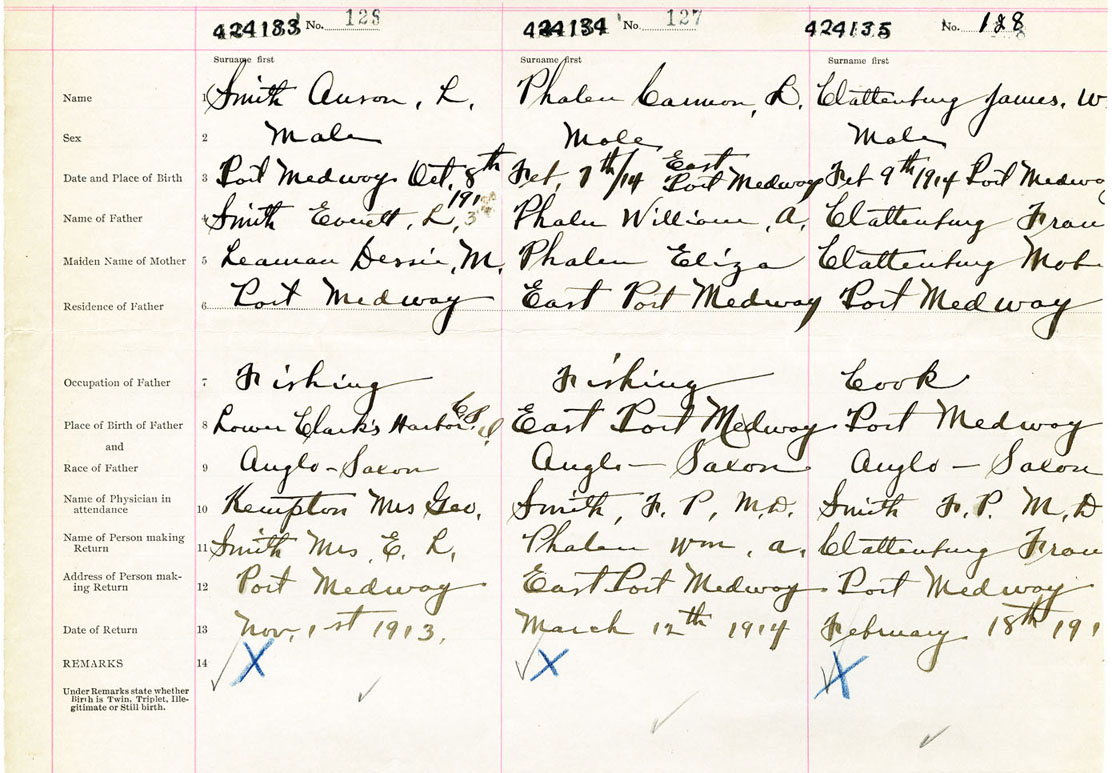 424133 No. 126 424134 No. 127 424135 No. 128
Surname first Surname first Surname first
Name 1 Smith Anson, L. Phalen Cannon, D. Clattenburg James, W
Sex 2 Male Male Male
Date and Place of Birth 3 Port Medway Oct, 8th 1913 Feb, 7th/14 East Port Medway Feb 9th 1914 Port Medway
Name of Father 4 Smith Everett, L, Phalen William, A, Clattenburg Fran
Maiden Name of Mother 5 Leaman Dessie, M. Phalen Eliza Clattenburg Mab
Residence of Father 6 Port Medway East Port Medway Port Medway
Occupation of Father 7 Fishing Fishing Cook
Place of Birth of Father 8 Lower Clark's Harbor. East Port Medway Port Medway
and
Race of Father 9 Anglo-Saxon Anglo-Saxon Anglo-Saxon
Name of Physician in attendance 10 Kempton Mrs Geo. Smith, F. P, M.D. Smith F. P. M. D
Name of Person making Return 11 Smith Mrs, E. L, Phalen Wm, A. Clattenburg Fran
Address of Person mak-ing Return 12 Port Medway East Port Medway Port Medway
Date of Return 13 Nov, 1st 1913, March 12th 1914 February 18th 191
REMARKS 14 X X X
Under Remarks state whether
Birth is Twin, Triplet, Ille-
gitimate or Still birth.